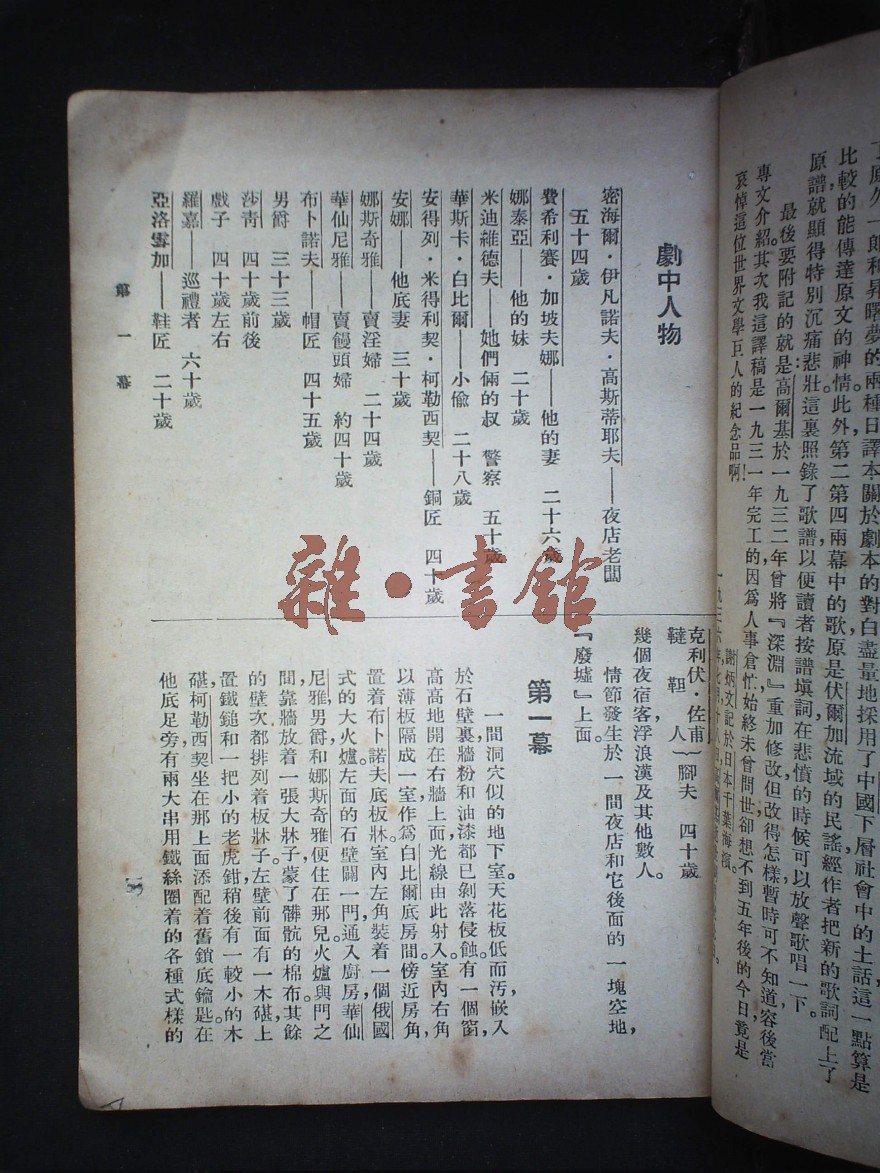 比較的能傳達原文的神情，此外第二第四兩幕中的歌原是伏爾加流域的民謠經作者把新的歌詞配上了
原譜就顯得特別沉痛悲壯，這裏照錄了歌譜以便讀者按譜塡詞在悲憤的時候可以放聲歌唱一下。
最後要附記的就是高爾基於一九三二年曾將『深淵』重加修改但改得怎樣暫時可不知道容後當
專文介紹。其次我這譯稿是一九三一年完工的，因爲人事倉忙始終未曾問世，卻想不到五年後的今日竟是
哀悼這位世界文學巨人的紀念品啊！
謝炳文記於日本千葉海濱。
劇中人物
密海爾·伊凡諾夫·高斯蒂耶夫——夜店老闆
五十四歲
費希利賽·加坡夫娜——他的妻 二十六歲
娜泰亞——他的妹 二十歲
米迪維德夫——她們倆的叔 警察 五十歲
華斯卡·白比爾——小偷 二十八歲
安得列·米得利契·柯勒西契——銅匠 四十歲
安娜——他底妻 三十歲
娜斯奇雅——賣淫婦 二十四歲
華仙尼雅——賣饅頭婦 約四十歲
布卜諾夫——帽匠 四十五歲
男爵 三十三歲
莎靑 四十歲前後
戲子 四十歲左右
羅嘉——巡禮者 六十歲
亞洛雪加——鞋匠 二十歲
克利伏·佐甫
韃靼人
}腳夫 四十歲
幾個夜宿客浮浪漢及其他數人。
情節發生於一間夜店和它後面的一塊空地，
『廢墟』上面。
第一幕
一間洞穴似的地下室。天花板低而汚，嵌入
於石壁裏，牆粉和油漆都已剝落侵蝕。有一個窗，
高高地開在右牆上面，光線由此射入。室內右角
以薄板隔成一室作爲白比爾底房間，傍近房角，
置着布卜諾夫底板牀。室內左角裝着一個俄國
式的大火爐。左面的石壁闢一門通入廚房，華仙
尼雅，男爵和娜斯奇雅便住在那兒。火爐與門之
間靠牆放着一張大牀子，蒙了髒骯的棉布。其餘
的壁次都排列着板牀子。左壁前面有一木碪，上
置鐵鎚和一把小的老虎鉗，稍後有一較小的木
碪，柯勒西契坐在那上面添配着舊鎖底鑰匙。在
他底足旁有兩大串用鐵絲圈着的各種式樣的
第一幕
雜·書館